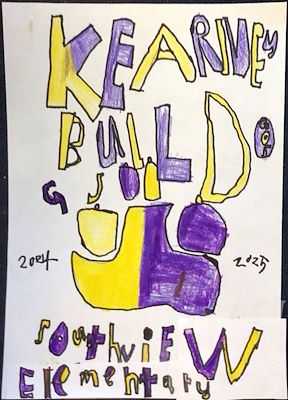 KEARNEY
BULLDO
GS
2024 2025
SouthviEW
Elementary